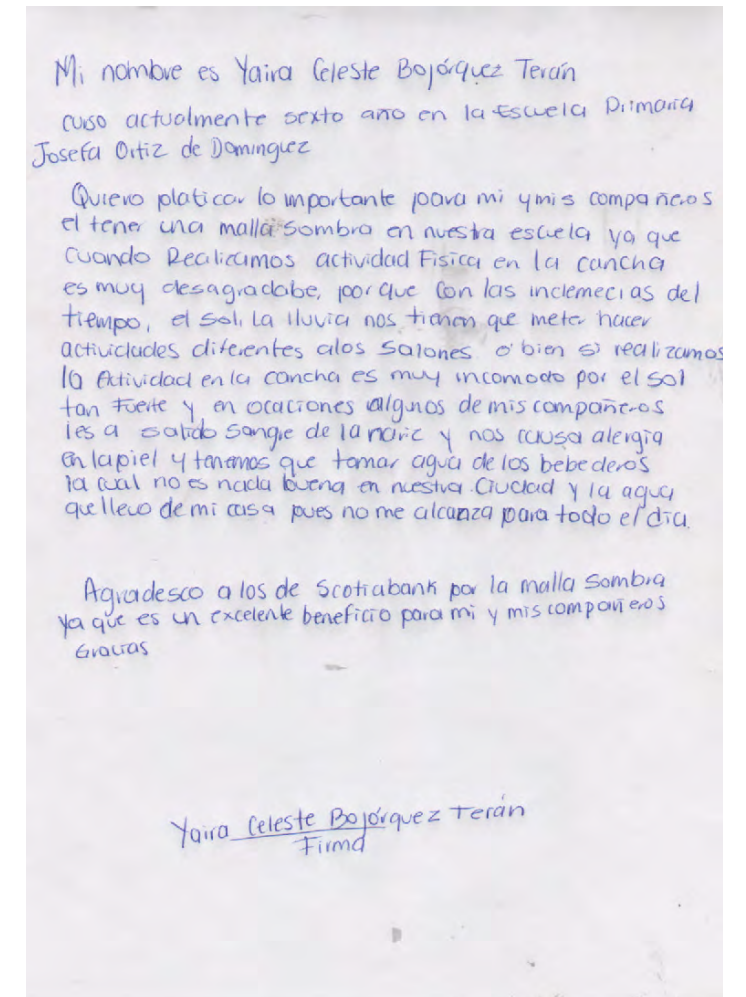 Mi nombre es Yaira Celeste Bojórquez Terán
curso actualmente sexto año en la Escuela Primaria
Josefa Ortiz de Dominguez
Quiero platicar lo importante para mi y mis compañeros
el tener una malla sombra en nuestra escuela ya que
cuando Realizamos actividad Fisica en la cancha
es muy desagradabe, porque con las inclemecias del
tiempo, el sol, la lluvia nos tienen que meter hacer
actividades diferentes alos salones o bien si realizamos
la Actividad en la cancha es muy incomodo por el sol
tan Fuerte y en ocaciones algunos de mis compañeros
les a salido sangre de la naric y nos causa alergia
en la piel y tenemos que tomar agua de los bebederos
la cual no es nada buena en nuestra Ciudad y la agua
que llevo de mi casa pues no me alcanza para todo el día.
Agradesco a los de Scotiabank por la malla sombra
ya que es un excelente beneficio para mi y mis compañeros
Gracias
Yaira Celeste Bojórquez Terán
Firma